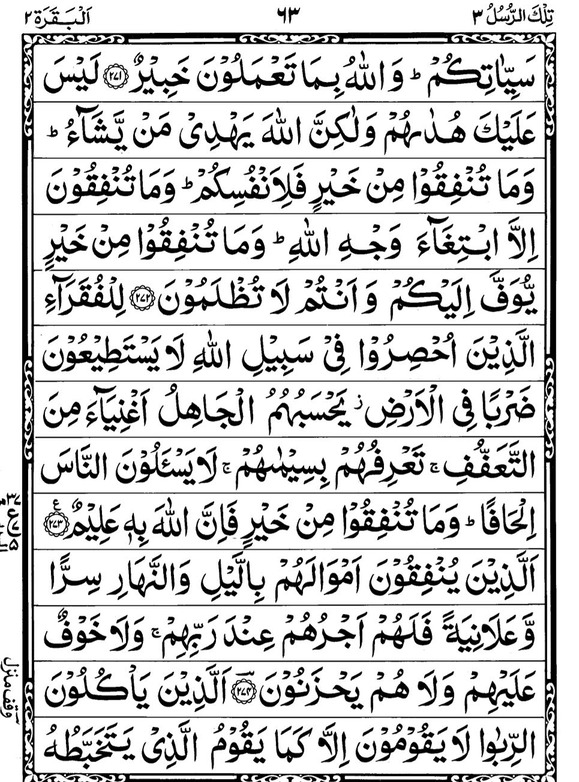 تِلْكَ الرُّسُلُ ٣ ٦٣ اَلْبَقَرَة ٢
سَيِّاٰتِكُمْ ؕ وَاللّٰهُ بِمَا تَعْمَلُوْنَ خَبِيْرٌ ﴿۲۷۱﴾ لَيْسَ
عَلَيْكَ هُدٰىهُمْ وَلٰكِنَّ اللّٰهَ يَهْدِىْ مَنْ يَّشَآءُ ؕ
وَمَا تُنْفِقُوْا مِنْ خَيْرٍ فَلِاَنْفُسِكُمْ ؕ وَمَا تُنْفِقُوْنَ
اِلَّا ابْتِغَآءَ وَجْهِ اللّٰهِ ؕ وَمَا تُنْفِقُوْا مِنْ خَيْرٍ
يُّوَفَّ اِلَيْكُمْ وَاَنْتُمْ لَا تُظْلَمُوْنَ ﴿۲۷۲﴾ لِلْفُقَرَآءِ
الَّذِيْنَ اُحْصِرُوْا فِىْ سَبِيْلِ اللّٰهِ لَا يَسْتَطِيْعُوْنَ
ضَرْبًا فِى الْاَرْضِ ز يَحْسَبُهُمُ الْجَاهِلُ اَغْنِيَآءَ مِنَ
التَّعَفُّفِ ۚ تَعْرِفُهُمْ بِسِيْمٰىهُمْ ۚ لَا يَسْـَٔلُوْنَ النَّاسَ
اِلْحَافًا ؕ وَمَا تُنْفِقُوْا مِنْ خَيْرٍ فَاِنَّ اللّٰهَ بِهٖ عَلِيْمٌ ﴿۲۷۳﴾ ع
اَلَّذِيْنَ يُنْفِقُوْنَ اَمْوَالَهُمْ بِالَّيْلِ وَالنَّهَارِ سِرًّا
وَّعَلَانِيَةً فَلَهُمْ اَجْرُهُمْ عِنْدَ رَبِّهِمْ ۚ وَلَا خَوْفٌ
عَلَيْهِمْ وَلَا هُمْ يَحْزَنُوْنَ ﴿۲۷۴﴾ اَلَّذِيْنَ يَاْكُلُوْنَ
الرِّبٰوا لَا يَقُوْمُوْنَ اِلَّا كَمَا يَقُوْمُ الَّذِىْ يَتَخَبَّطُهُ
وقف منزل